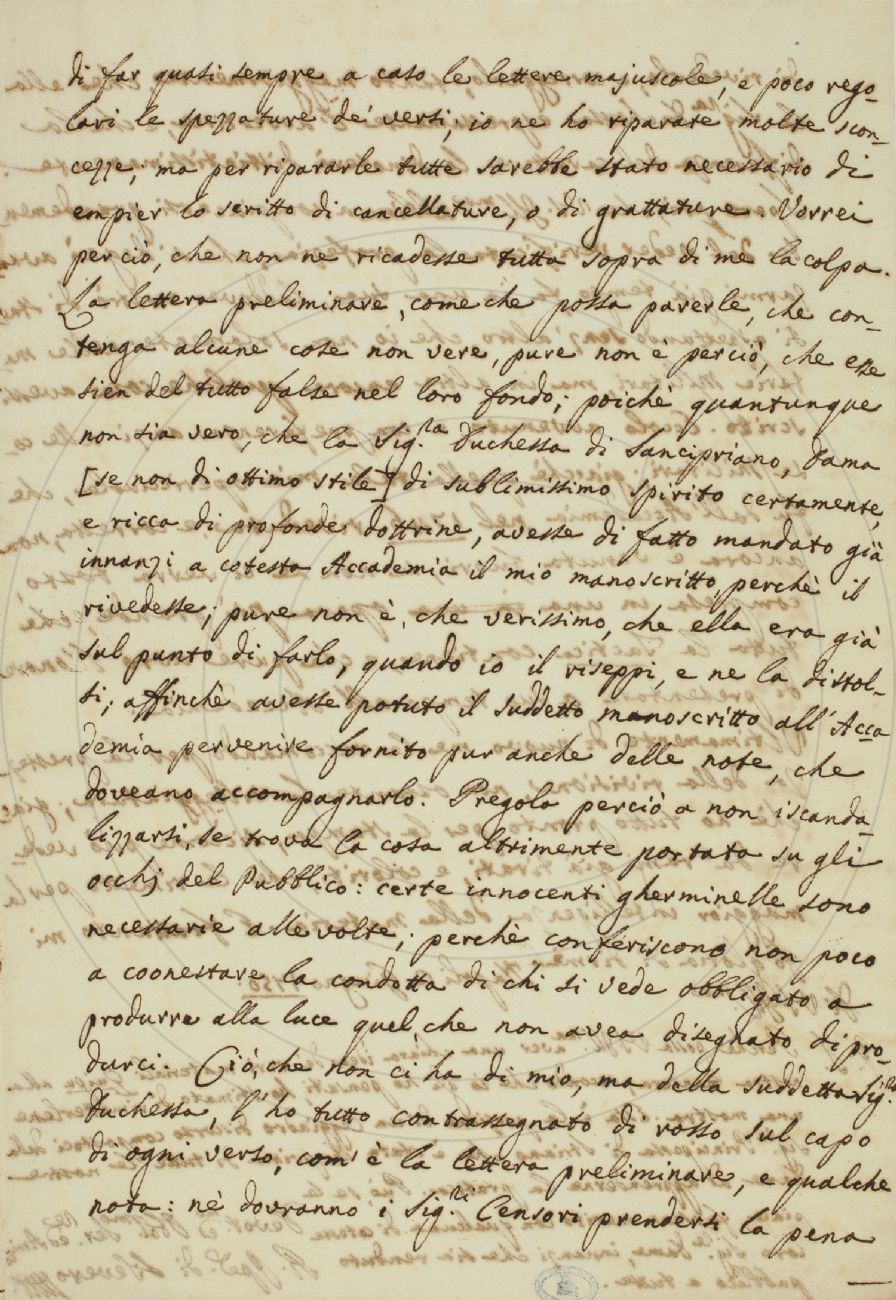 di far quasi sempre a caso le lettere majuscole, e poco rego-
lari le spezzature de' versi; io ne ho riparate molte scon-
cezze; ma per ripararle tutte sarebbe stato necessario di
empier lo scritto di cancellature, o di grattature. Vorrei
perciò, che non ne ricadesse tutta sopra di me la colpa.
La lettera preliminare, come che possa parerle, che con-
tenga alcune cose non vere, pure non è perciò, che esse
sien del tutto false nel loro fondo; poichè quantunque
non sia vero, che la Sig.ra Duchessa di Sancipriano, Dama
[se non di ottimo stile] di sublimissimo spirito certamente,
e ricca di profonde dottrine, avesse di fatto mandato già
innanzi a cotesta Accademia il mio manoscritto perchè il
rivedesse; pure non è, che verissimo, che ella era già
sul punto di farlo, quando io il riseppi, e ne la distol-
si; affinchè avesse potuto il suddetto manoscritto all'Acca
demia pervenire fornito pur anche delle note, che
doveano accompagnarlo. Pregola perciò a non iscanda-
lizzarsi, se trova la cosa altrimente portata su gli
occhj del Pubblico: certe innocenti gherminelle sono
necessarie alle volte; perchè conferiscono non poco
a coonestare la condotta di chi si vede obbligato a
produrre alla luce quel, che non avea disegnato di pro-
durci. Ciò, che non ci ha di mio, ma della suddetta Sig.ra
Duchessa, l'ho tutto contrassegnato di rosso sul capo
di ogni verso, com' è la lettera preliminare, e qualche
nota: nè dovranno i Sig.ri Censori prendersi la pena